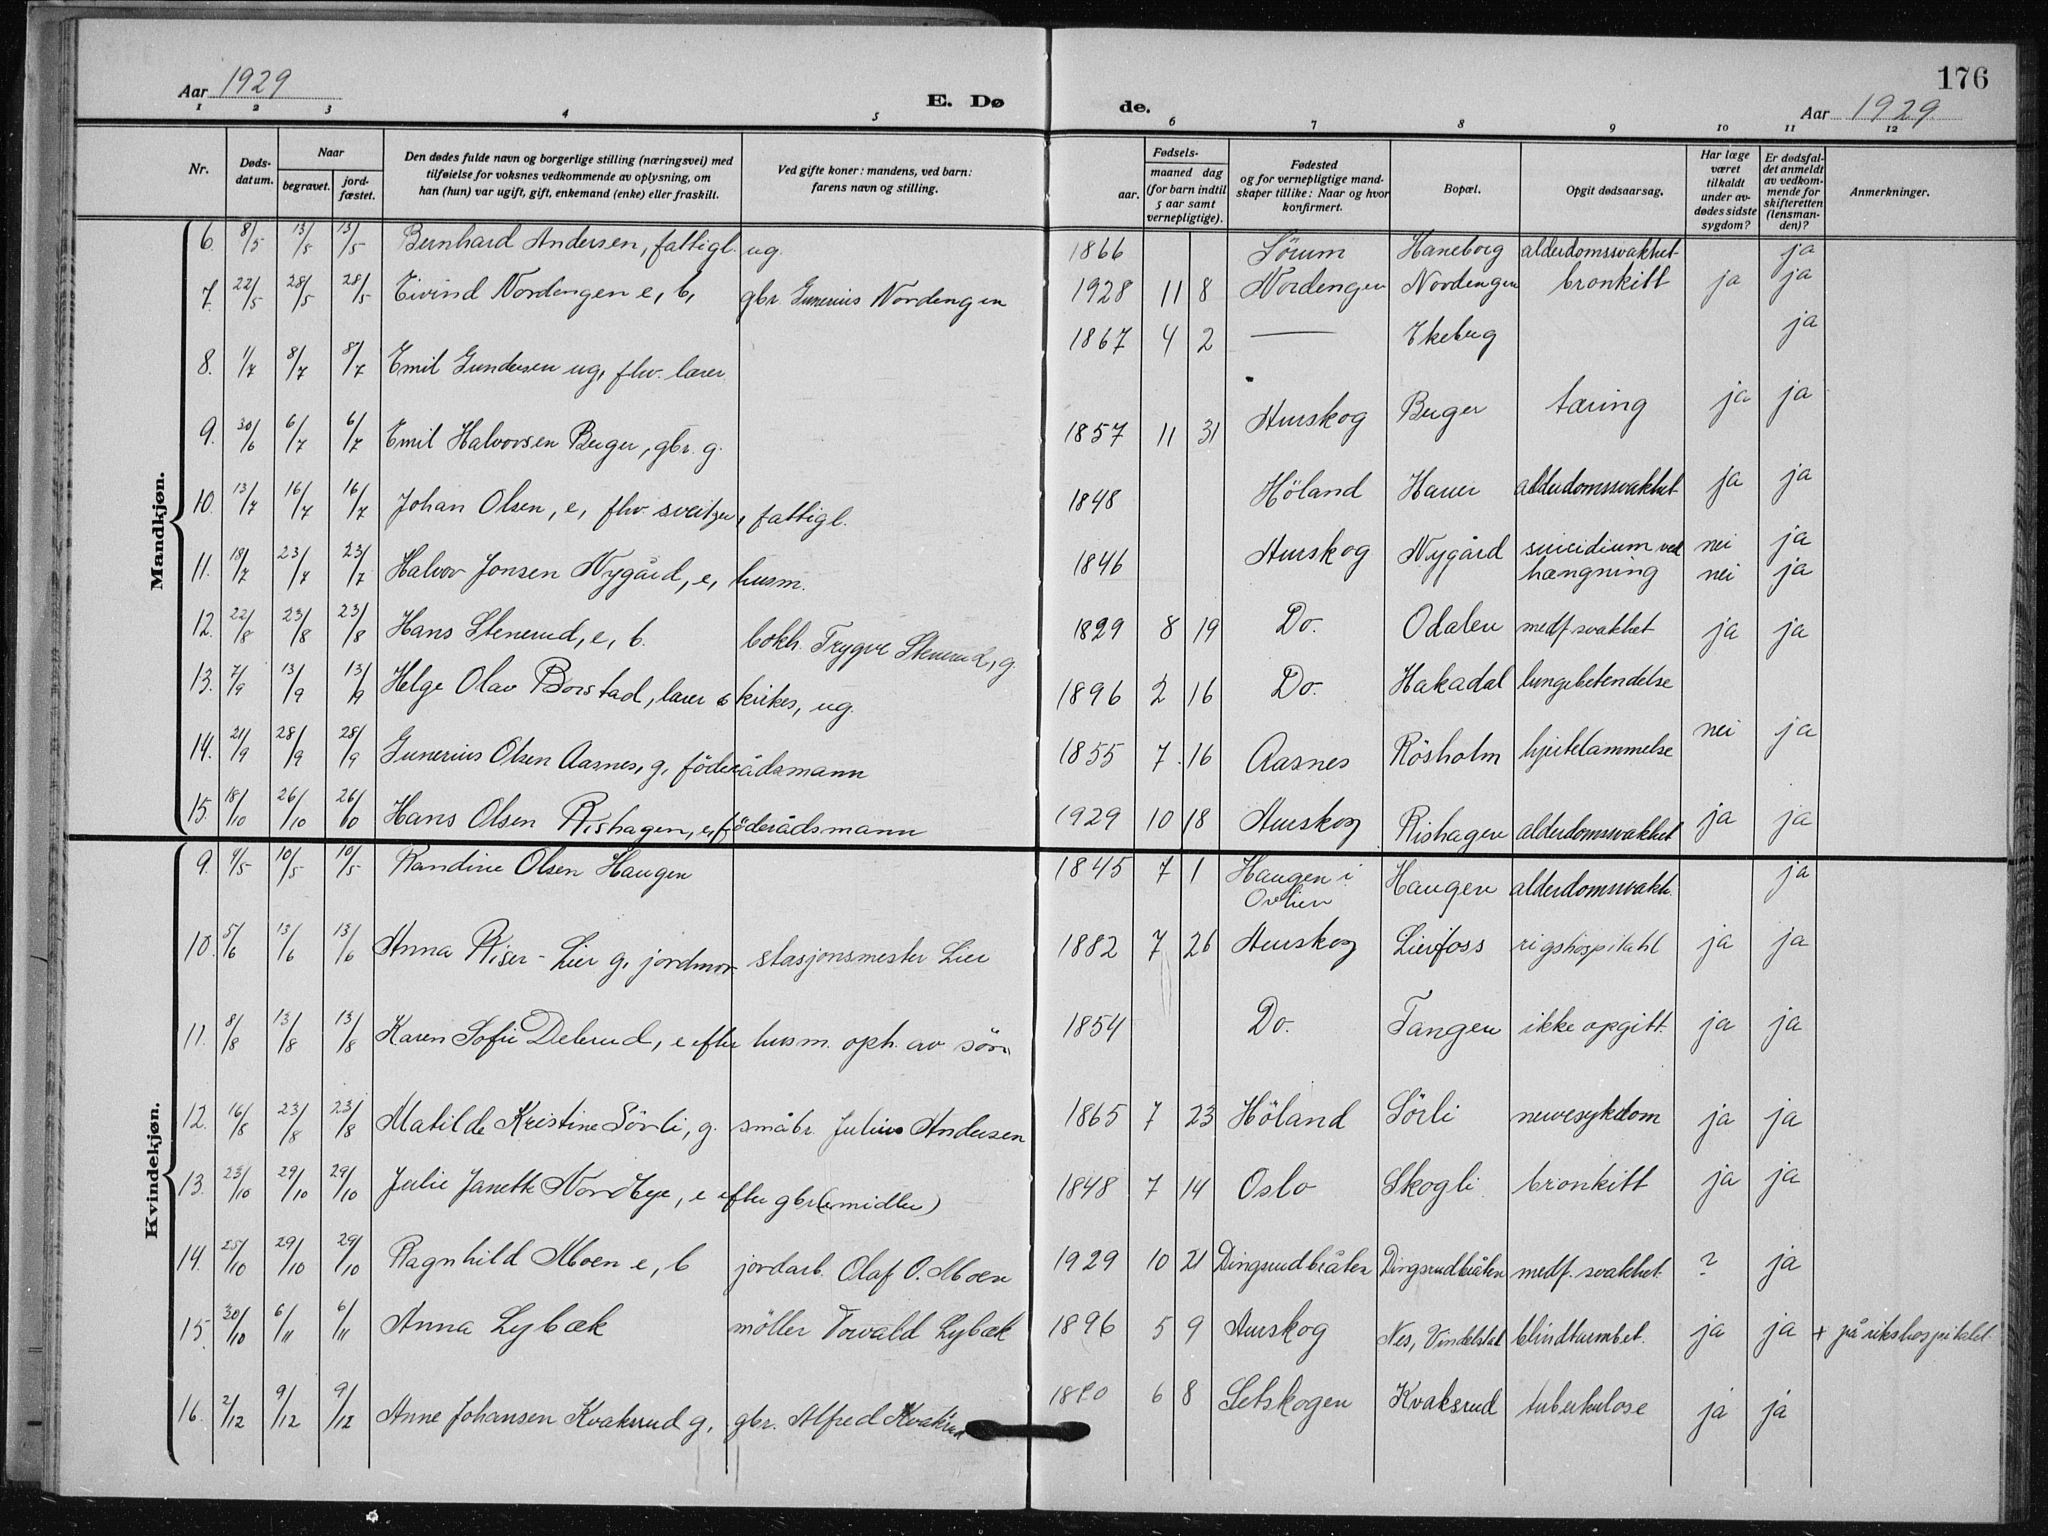 176
Aar 1929
E. Dø de.
Aar 1929
1 2 3 4 5 6 7 8 9 10 11 12
Nr. | Døds-datum. | Naar begravet. | jord-fæstet. | Den dødes fulde navn og borgerlige stilling (næringsvei) med tilføielse for voksnes vedkommende av oplysning, om han (hun) var ugift, gift, enkemand (enke) eller fraskilt. | Ved gifte koner: mandens, ved barn: farens navn og stilling. | Fødsels- aar. maaned dag (for barn indtil 5 aar samt vernepligtige). | Fødested og for vernepligtige mand-skaper tillike: Naar og hvor konfirmert. | Bopæl. | Opgit dødsaarsag. | Har læge været tilkaldt under av-dødes sidste sygdom? | Er dødsfal-det anmeldt av vedkom-mende for skifteretten (lensman-den)? | Anmerkninger.
Mandkjøn.
6. 8/5 13/5 13/5 Bernhard Andersen, fattigl. ug. 1866 Sörum Haneborg alderdomssvakhet ja
7. 22/5 28/5 28/5 Eivind Nordengen e, b, gbr. Gunerius Nordengen 1928 11 8 Nordengen Nordengen bronkitt ja ja
8. 1/7 8/7 8/7 Emil Gundersen ug, fhv. lærer 1867 4 2 — Ekeberg ja
9. 30/6 6/7 6/7 Emil Halvorsen Berger, gbr. g. 1857 11 31 Aurskog Berger tæring ja ja
10. 13/7 16/7 16/7 Johan Olsen, e, fhv. sveitzer, fattigl. 1848 Höland Hauer alderdomssvakhet ja ja
11. 18/7 23/7 23/7 Halvor Jonsen Nygård, e, husm. 1846 Aurskog Nygård suicidium ved hængning nei ja nei ja
12. 22/8 23/8 23/8 Hans Stenerud, e, b. bokh. Trygve Stenerud, g. 1829 8 19 Do. Odalen medf. svakhet ja ja
13. 7/9 13/9 13/9 Helge Olav Borstad, lærer & kirkes, ug. 1896 2 16 Do. Hakadal lungebetendelse
14. 21/9 28/9 28/9 Gunerius Olsen Aasnes, g, föderådsmann 1855 7 16 Aasnes Rösholm hjertelammelse nei ja
15. 18/10 26/10 26/10 Hans Olsen Rishagen, e, föderådsmann 1929 10 18 Aurskog Rishagen alderdomssvakhet ja ja
Kvindekjøn.
9. 4/5 10/5 10/5 Randine Olsen Haugen 1845 7 1 Haugen i Ovlien Haugen alderdomssvakh. ja
10. 5/6 13/6 13/6 Anna Riser-Lier g, jordmor stasjonsmester Lier 1882 7 26 Aurskog Lierfoss rigshospitahl ja ja
11. 8/8 13/8 13/8 Karen Sofie Delerud, e efter husm. oph. av sön 1854 Do. Tangen ikke opgitt ja ja
12. 16/8 23/8 23/8 Matilde Kristine Sörli, g. småbr. Julius Andersen 1865 7 23 Höland Sörli nervesykdom ja ja
13. 23/10 29/10 29/10 Julie Janette Nordbye, e efter gbr (emidler) 1848 7 14 Oslo Skogli bronkitt ja ja
14. 25/10 29/10 29/10 Ragnhild Moen e, b jordarb. Olaf O. Moen 1929 10 21 Dingsrudbråten Dingsrudbråten medf. svakhet. ? ja
15. 30/10 6/11 6/11 Anna Lybæk möller Torvald Lybæk 1896 5 9 Aurskog Nes, Vindelstad blindtarmbet. ja ja + på rikshospitalet
16. 2/12 9/12 9/12 Anne Johansen Kvaksrud g, gbr. Alfred Kvaksrud 1890 6 8 Setskogen Kvaksrud tuberkulose ja ja